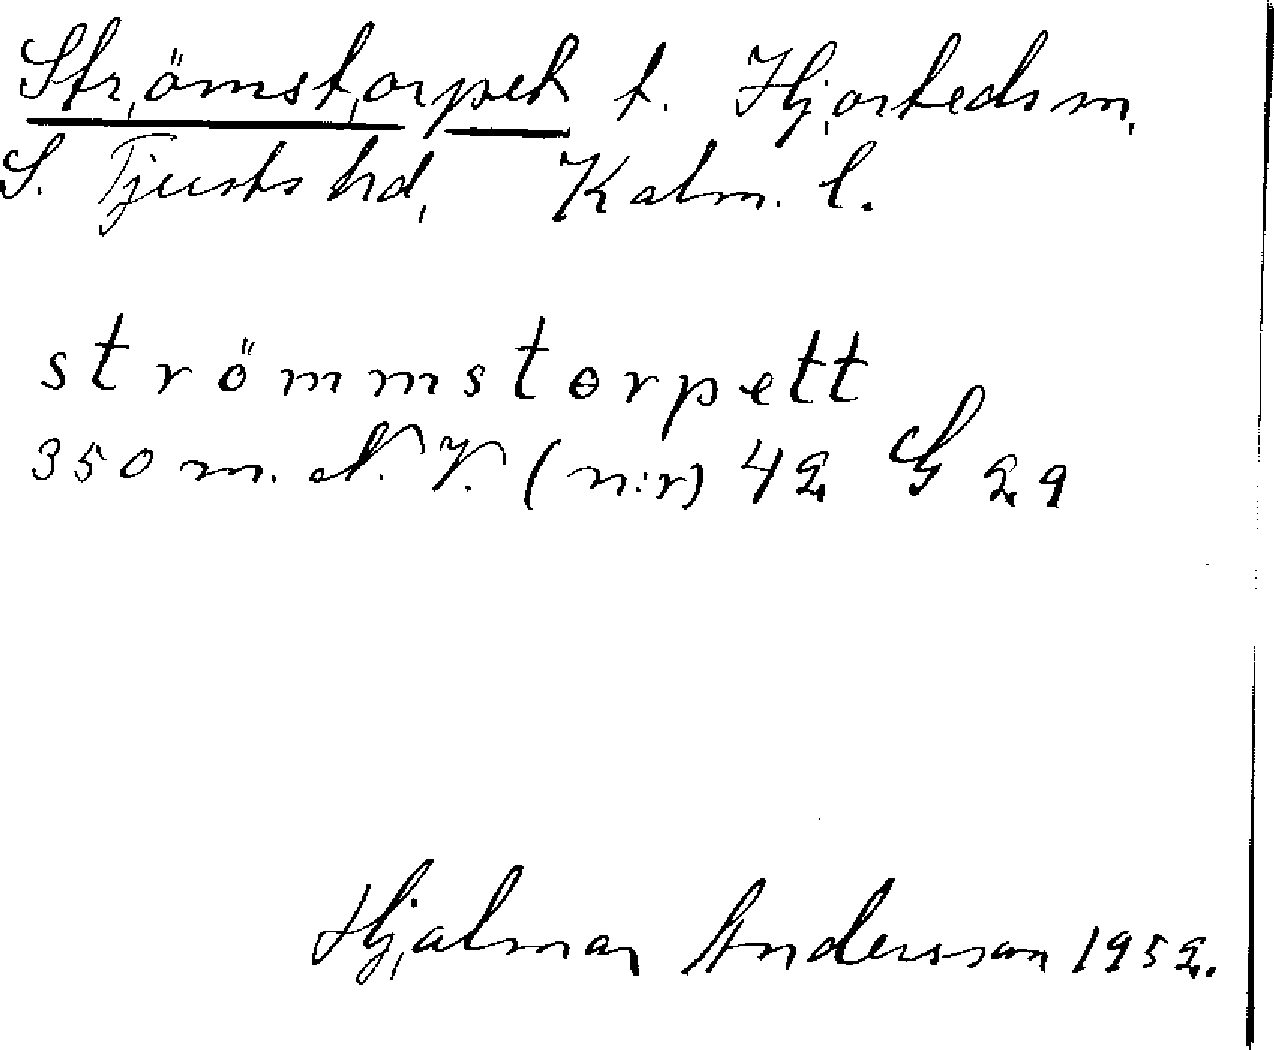 Strömstorpet t. Hjorteds sn,
S. Tjusts hd, Kalm. l.
strömmstorpett
350 m. N. V. (n:r) 42 G 29
Hjalmar Andersson 1952.